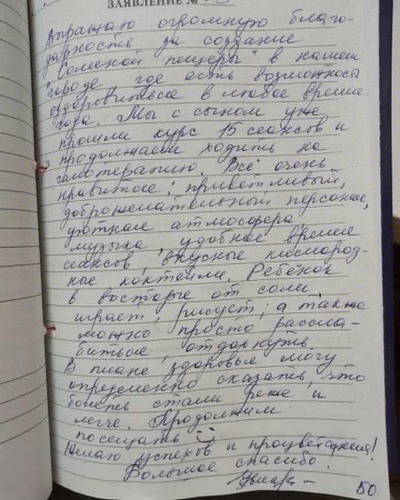 ЗАЯВЛЕНИЕ №
Выражаю огромную благо-
дарность за создание
"Соленой пещеры" в нашем
городе где есть возможность
оздоровиться в любое время
года. Мы с сыном уже
прошли курс 15 сеансов и
продолжаем ходить на
галотерапию. Всё очень
нравится: приветливый,
доброжелательный персонал,
уютная атмосфера
музыка, удобное время
сеансов, вкусные кислород-
ные коктейли. Ребенок
в восторге от соли
играет, рисует; а также
можно просто рассла-
биться, отдохнуть.
В плане здоровья могу
определенно сказать, что
болеть стали реже и
легче. Продолжим
посещать :-)
Желаю успехов и процветания!
Большое спасибо.
50